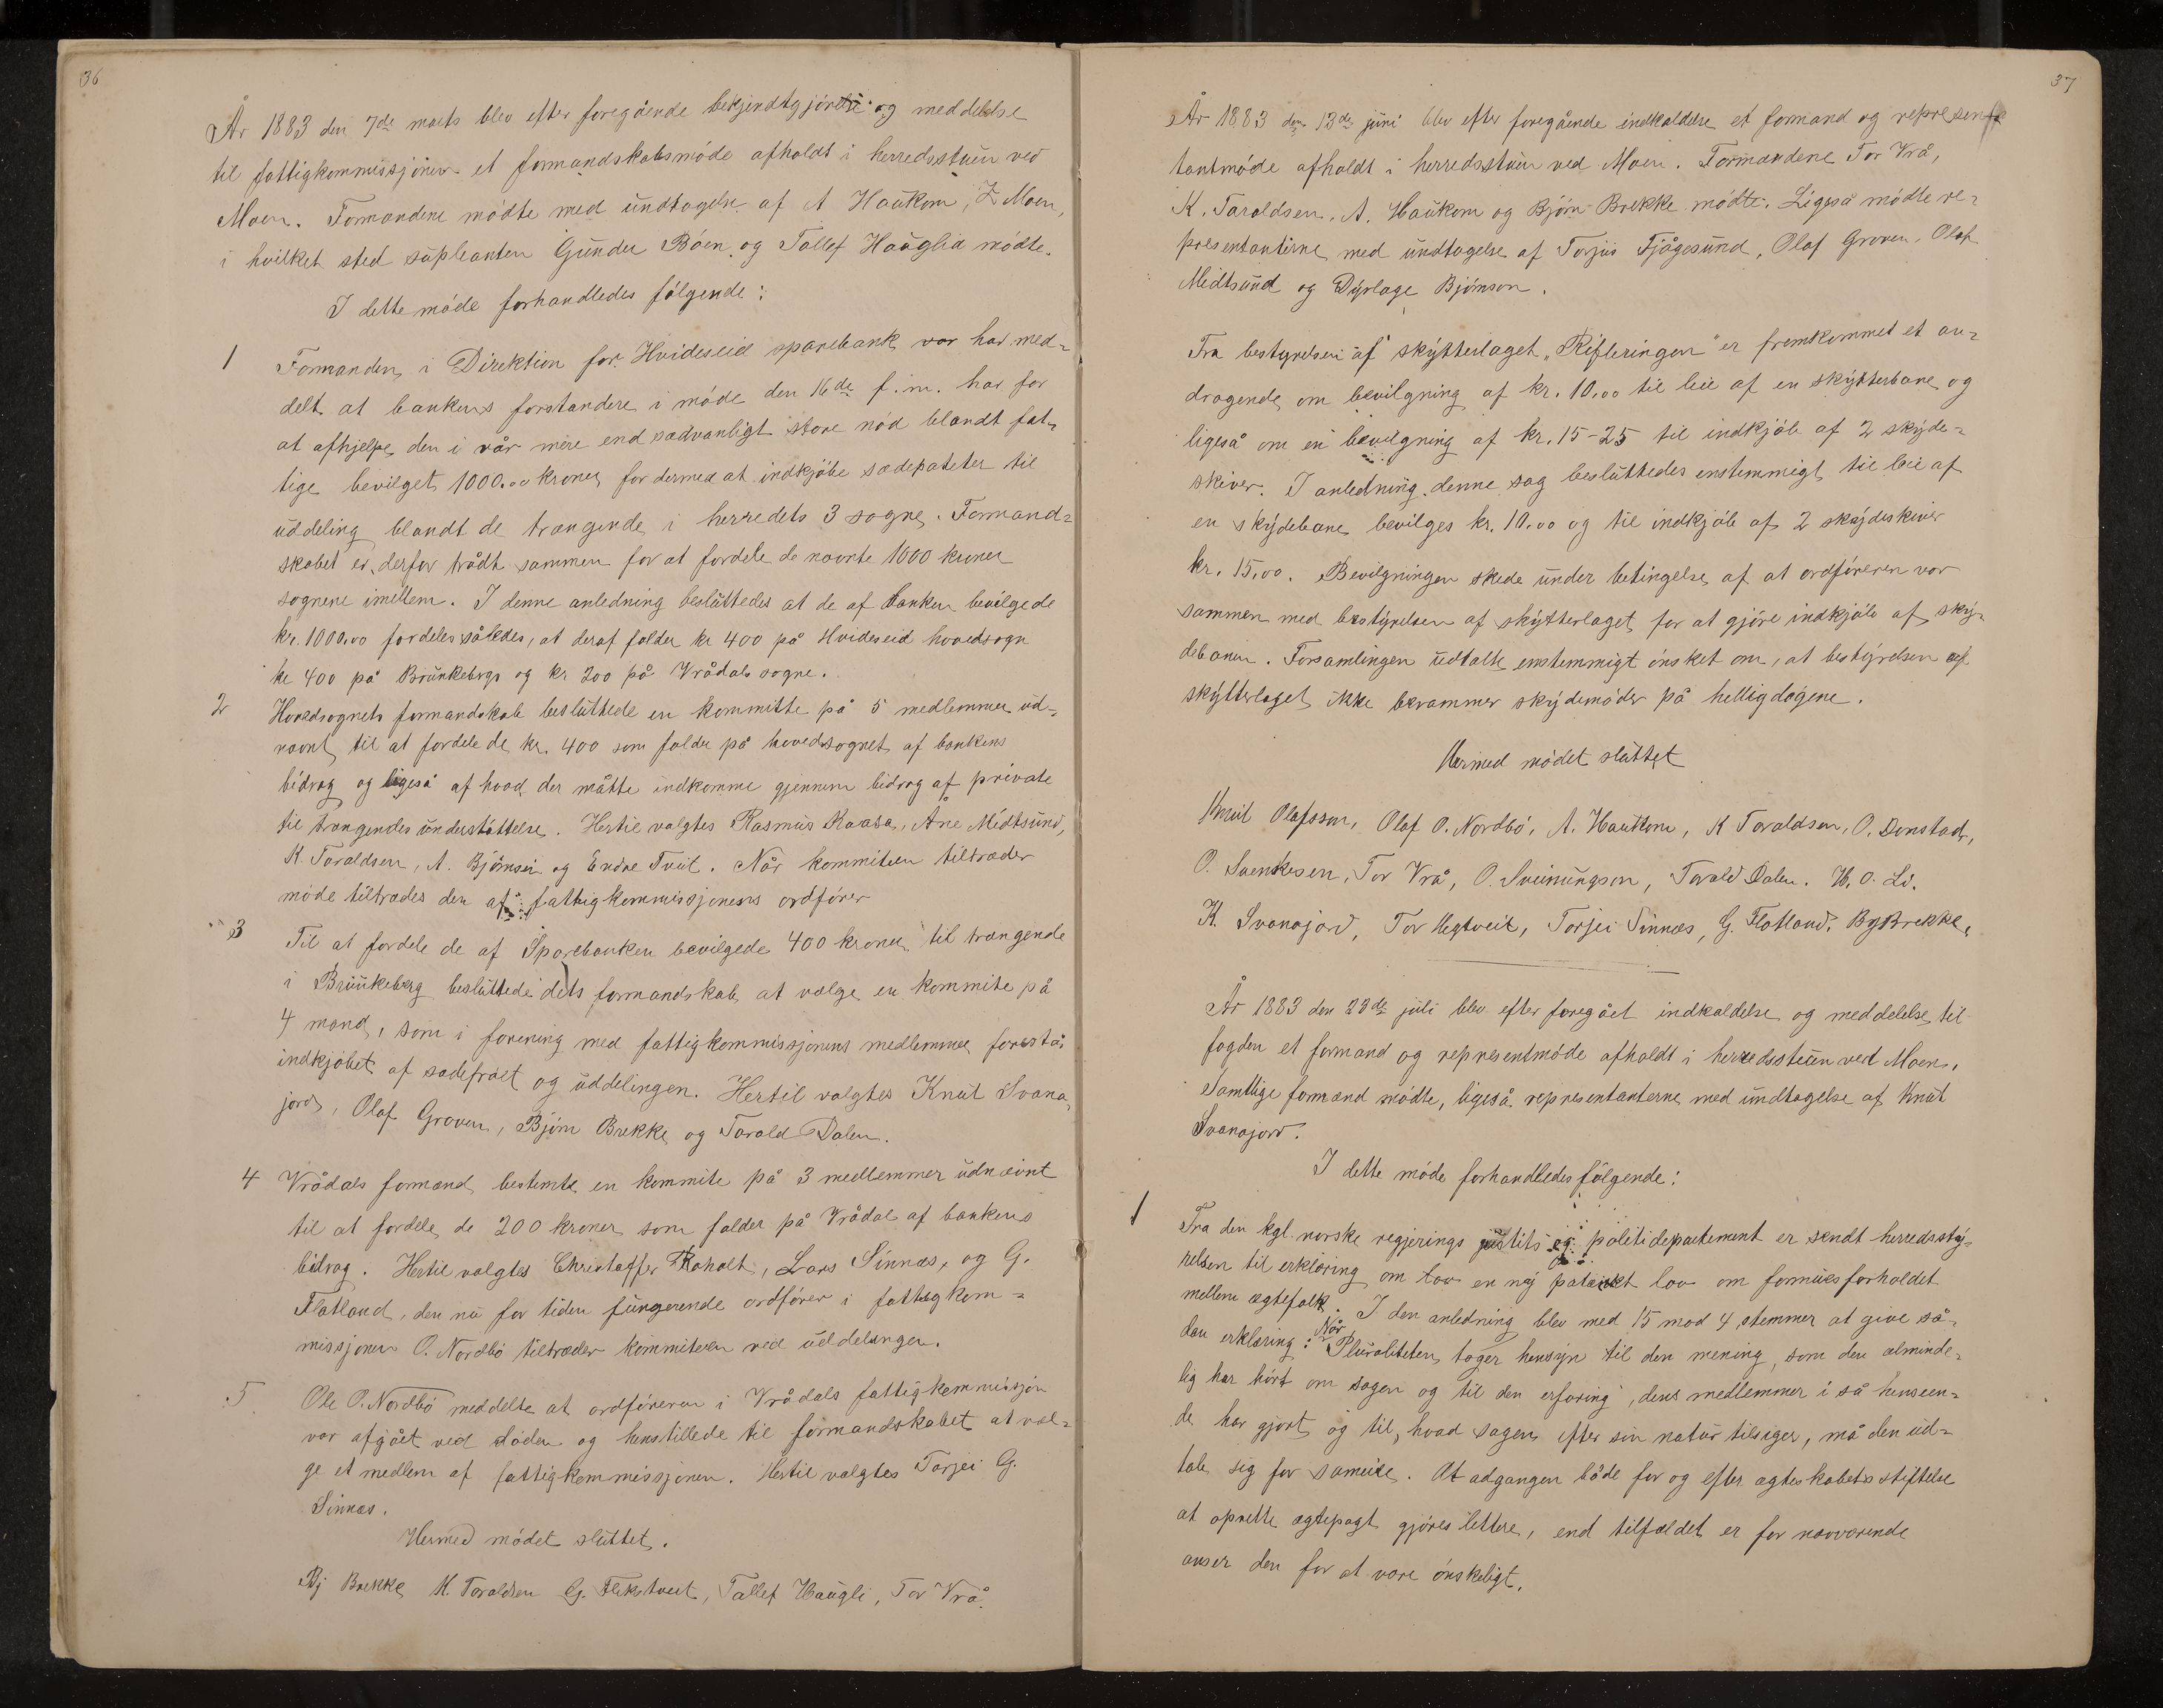 36
År 1883 den 7de marts blev efter foregående bekjendtgjørelse og meddelelse
til fattigkommissjonen et formandskabsmöde afholdt i herredsstuen ved
Moen. Formændene mödte med undtagelse af A Haukom, Z Moen,
i hvilket sted supleanten Gunder Böen og Tallef Hauglia mödte.
I dette möde forhandledes fölgende:
1 Formanden i Direktion for Hvideseid sparebank vor har med=
delt at bankens forstandere i möde den 16de f.m. har for
at afhjelpe den i vår mere end sædvanligt store nöd blandt fat-
tige bevilget 1000.00 kroner for dermed at indkjöbe sædepoteter til
uddeling blandt de trængende i herredets 3 sogne. Formand=
skabet er derfor trådt sammen for at fordele de nævnte 1000 kroner
sognene imellem. I denne anledning besluttedes at de af banken bevilgede
kr. 1000.00 fordeles således, at deraf falder kr 400 på Hvideseid hovedsogn
kr 400 på Brunkebergs og kr 200 på Vrådals sogne.
2 Hovedsognets formandskab besluttede en kommitte på 5 medlemmer ud-
nævnt til at fordele de kr. 400 som falder på hovedsognet af bankens
bidrag og ligeså af hvad der måtte indkomme gjennem bidrag af private
til trængendes understöttelse. Hertil valgtes Rasmus Kaasa, Åne Midtsund,
K. Taraldsen, A. Björnsen og Endre Tveit. Når kommiteen tiltræder
möde tiltrædes den af fattigkommissjonens ordförer
3 Til at fordele de af Sparebanken bevilgede 400 kroner til trængende
i Brunkeberg besluttede dets formandskab at vælge en kommite på
4 mand, som i forening med fattigkommissjonens medlemmer forestår
indkjöbet af sædefröet og uddelingen. Hertil valgtes Knut Svana-
jord, Olaf Groven, Björn Brekke og Tarald Dalen.
4 Vrådals formænd bestemte en kommite på 3 medlemmer udnævnt
til at fordele de 200 kroner som falder på Vrådal af bankens
bidrag. Hertil valgtes Christaffer Roholt, Lars Sinnæs, og G.
Flatland, den nu for tiden fungerende ordförer i fattigkom=
missjonen O. Nordbö tiltræder kommiteen ved uddelingen.
5 Ole O. Nordbö meddelte at ordföreren i Vrådals fattigkommissjon
var afgået ved döden og henstillede til formandskabet at væl=
ge et medlem af fattigkommissjonen. Hertil valgtes Torjei G.
Sinnæs.
Hermed mödet sluttet.
Bj Brekke K. Taraldsen G. Flekstveit, Tallef Haugli, Tor Vrå.
37
År 1883 den 13de juni blev efter foregående indkaldelse et formand og represen
tantmöde afholdt i herredsstuen ved Moen. Formændene Tor Vrå,
K. Taraldsen, A. Haukom og Björn Brekke mödte. Ligeså mödte re=
presentanterne med undtagelse af Torjus Fjågesund, Olaf Groven, Olaf
Midtsund og Dyrlage Björnson.
Fra bestyrelsen af skytterlaget "Rifleringen" er fremkommet et an=
dragende om bevilgning af kr. 10.00 til leie af en skytterbane og
ligeså om en bevilgning af kr. 15-25 til indkjöb af 2 skyde=
skiver. I anledning denne sag besluttedes enstemmigt til leie af
en skydebane bevilges kr. 10.00 og til indkjöb af 2 skydeskiver
kr. 15.00. Bevilgningen skede under betingelse af at ordföreren var
sammen med bestyrelsen af skytterlaget for at gjöre indkjöb af sky-
debanen. Forsamlingen udtalte enstemmigt önsket om, at bestyrelsen af
skytterlaget ikke berammer skydemöder på helligdagene.
Hermed mödet sluttet
Knut Olafsson, Olaf O. Nordbö, A. Haukom, K Taraldsen, O. Donstad,
O. Svenkesen, Tor Vrå, O. Sveinungson, Tarald Dalen. H. O. Li.
K. Svanajord, Tor Hegtveit, Torjei Sinnæs, G. Flatland, Bj Brekke,
År 1883 den 23de juli blev efter foregået indkaldelse og meddelelse til
fogden et formand og representmöde afholdt i herredsstuen ved Moen.
Samtlige formænd mödte, ligeså representanterne med undtagelse af Knut
Svanajord.
I dette möde forhandledes fölgende:
1 Fra den kgl. norske regjerings justits og politidepartement er sendt herredssty-
relsen til erklæring om en ny lov om formuesforholdet
mellem ægtefolk. I den anledning blev med 15 mod 4 stemmer at give så-
dan erklæring: Når Pluraliteten tager hensyn til den mening, som den alminde-
lig har hört om sagen og til den erfaring, dens medlemmer i så henseen=
de har gjort og til, hvad sagen efter sin natur tilsiger, må den ud=
tale sig for sameie. At adgangen både for og efter ægteskabets stiftelse
at oprette ægtepagt gjöres lettere, end tilfældet er for nærværende
anser den for at være önskeligt.